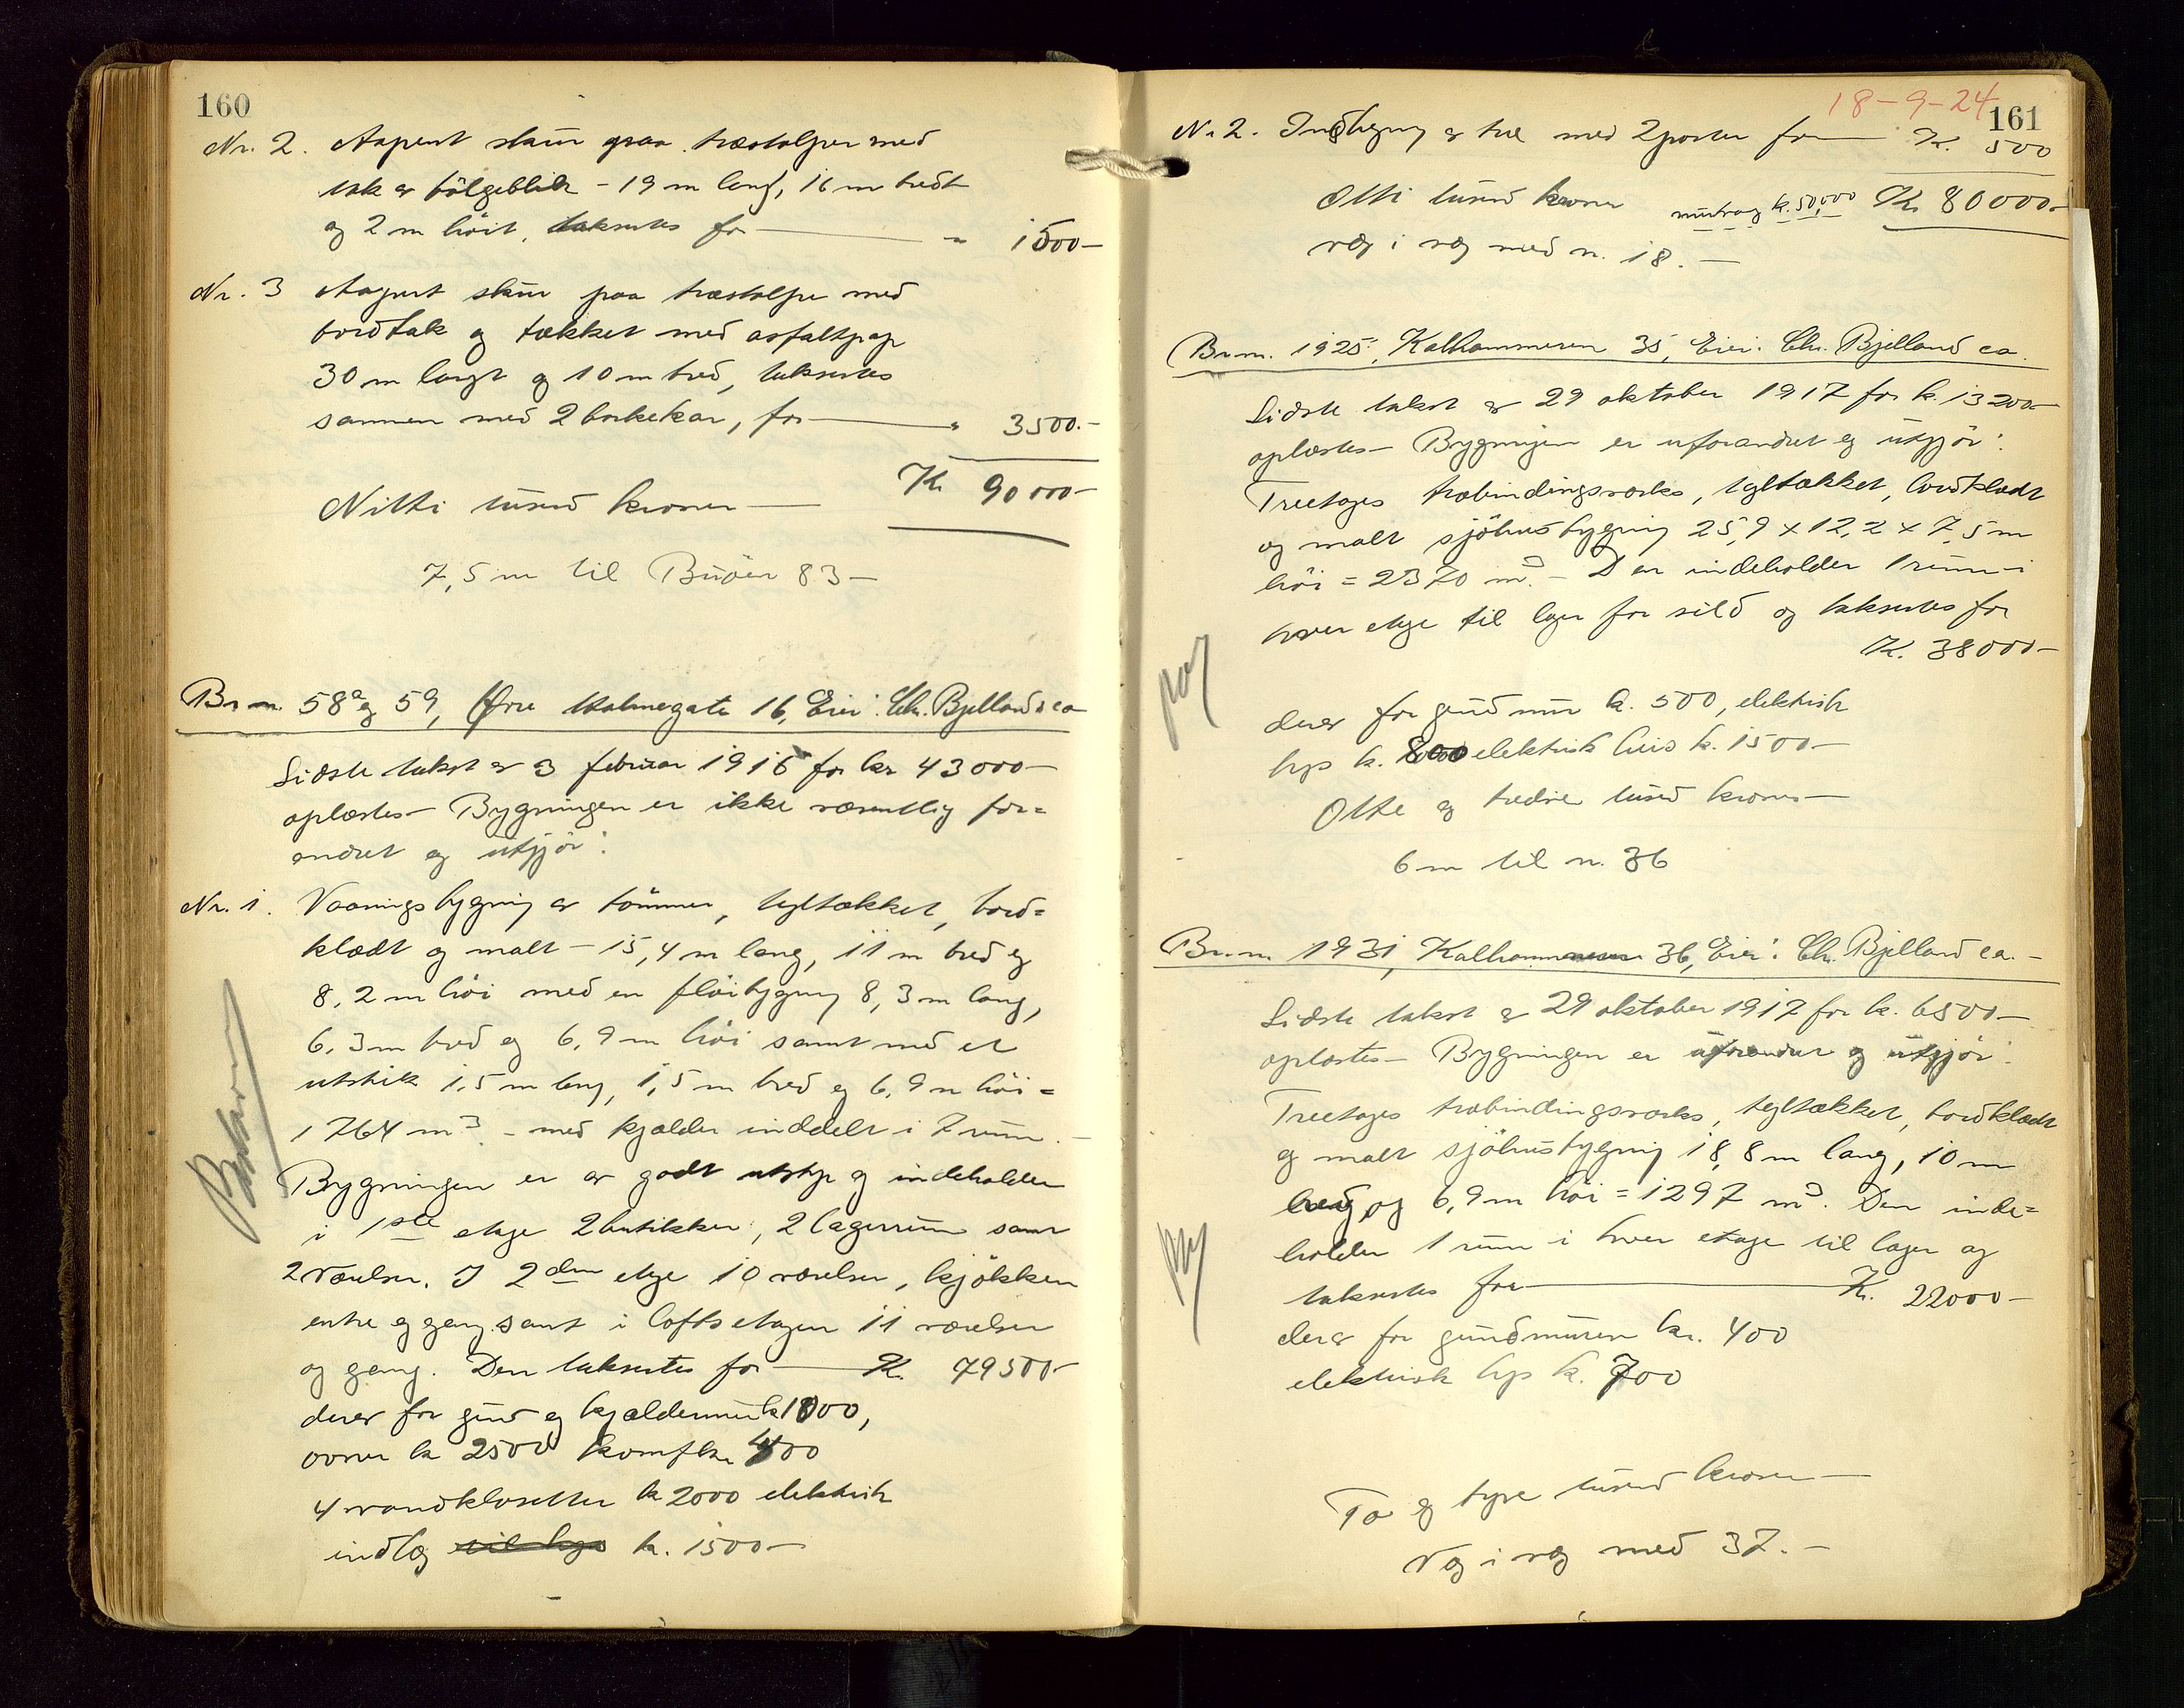 160
Nr. 2. Aapent skur paa træstolper med
tak av bölgeblik - 19 m lang, 16 m bredt
og 2 m höit, takseres for — " 1500 —
Nr. 3 Aapent skur paa træstolper med
bordtak og tækket med asfaltpap
30 m langt og 10 m bred, takseres
sammen med 2 barkekar, for — " 3500.—
Nitti tusen kroner — Kr 90000 —
7,5 m til Buöen 83 —
Br.n. 58a og 59, Øvre Holmegate 16, Eier: Chr. Bjelland & co
Sidste takst av 3 februar 1916 for kr 43000 —
oplæstes — Bygningen er ikke væsentlig for=
andret og utgjör:
Nr. 1. Vaaningsbygning av tömmer, tegltækket, bord=
klædt og malt — 15,4 m lang, 11 m bred og
8,2 m höi med en flöibygning 8,3 m lang,
6,3 m bred og 6,9 m höi samt med et
utstik 1,5 m lang, 1,5 m bred og 6,9 m höi =
1764 m3. - med kjælder inddelt i 7 rum. —
Bygningen er av godt utstyr og indeholder
i 1ste etage 2 butikker, 2 lagerrum samt
2 værelser. I 2den etage 10 værelser, kjökken
entre og gang samt i loftsetagen 11 værelser
og gang. Den takseres for — Kr. 79500 —
derav for grund og kjældermur kr 1000,
ovner kr 2500 komf kr 400
4 vandklosetter kr 2000 elektrisk
indlæg til lys kr. 1500 —
18-9-24
161
Nr 2. Indhegning av træ med 2 porter for — Kr. 500
Otti tusen kroner mutrag k. 50,000 Kr 80000 —
væg i væg med n. 18. —
Br.n. 1925, Kalhammeren 35, Eier: Chr. Bjelland & co.
Sidste takst av 29 oktober 1917 for k. 13200 —
oplæstes — Bygningen er uforandret og utgjör:
Treetages træbindingsverks, tegltækket, bordklædt
og malt sjöhusbygning 25,9 x 12,2 x 7,5 m
höi = 2370 m3. — Den indeholder 1 rum i
hver etage til lager for sild og takseres for
Kr. 38000 —
derav for grundmur k. 500, elektrisk
lys k. 800 elektrisk heis k. 1500 —
Otte og tredive tusen kroner —
6 m til n. 36
Br.n. 1931, Kalhammeren 36, Eier: Chr. Bjelland & co. —
Sidste takst av 29 oktober 1917 for k. 6500 —
oplæstes — Bygningen er uforandret og utgjör:
Treetages træbindingsverks, tegltækket, bordklædt
og malt sjöhusbygning 18,8 m lang, 10 m
bred, og 6,9 m höi = 1297 m3. Den inde=
holder 1 rum i hver etage til lager og
takseres for — Kr. 22000 —
derav for grundmuren kr. 400
elektrisk lys k. 700
To og tyve tusen kroner —
Væg i væg med 37. —